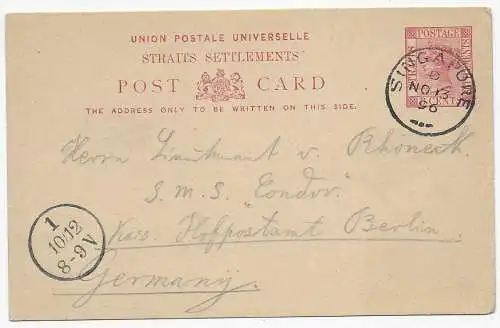 UNION POSTALE UNIVERSELLE
STRAITS SETTLEMENTS
POST CARD
THE ADDRESS ONLY TO BE WRITTEN ON THIS SIDE.
POSTAGE
SINGAPORE
NO 13
96
Herrn Lieutenant v. Rhoneck
S.M.S. "Condor"
Kais. Hofpostamt Berlin
Germany.
1
10/12
8-9 V